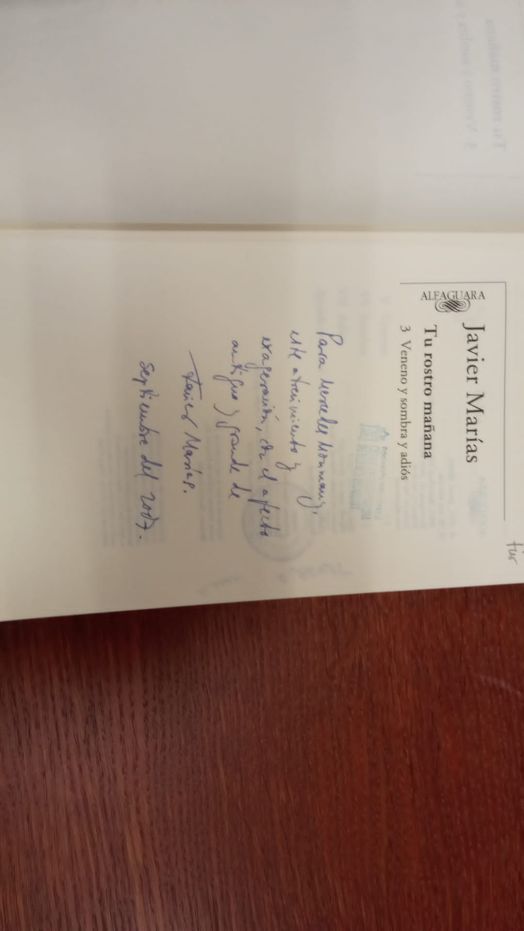 Javier Marías
Tu rostro mañana
3 Veneno y sombra y adiós
ALFAGUARA
Para Mercedes Monmany,
este atrevimiento y
exageración, con el afecto
antiguo y grande de
Javier Marías.
Septiembre del 2007.